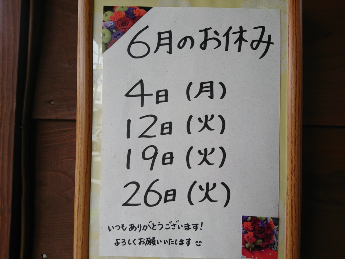 6月のお休み
4日(月)
12日(火)
19日(火)
26日(火)
いつもありがとうございます!
よろしくお願いいたします☺